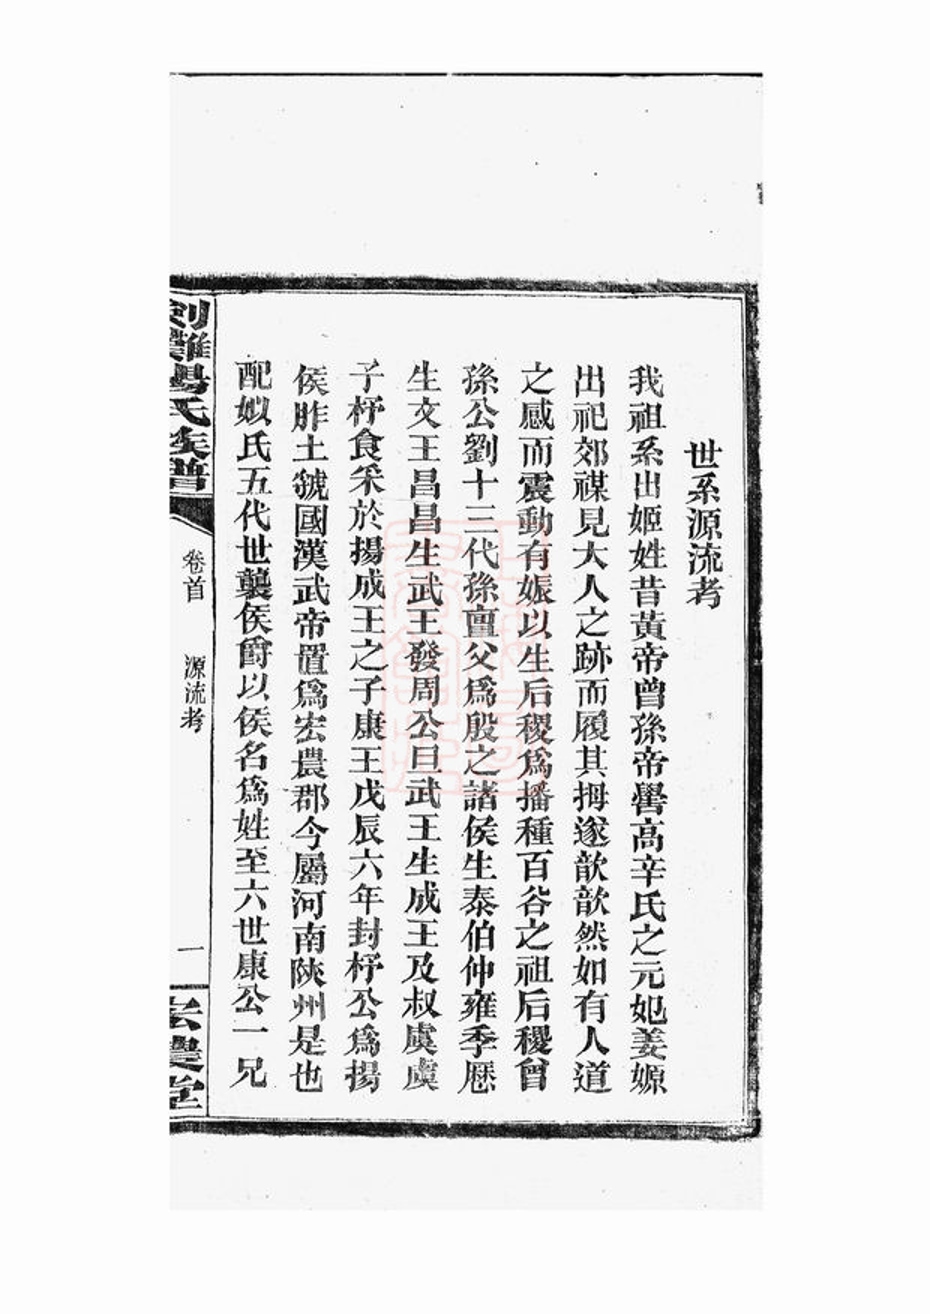 世系源流考
我祖系出姬姓昔黃帝曾孫帝嚳高辛氏之元妃姜嫄
出祀郊禖見大人之跡而履其拇遂歆歆然如有人道
之感而震動有娠以生后稷爲播種百谷之祖后稷曾
孫公劉十三代孫亶父爲殷之諸侯生泰伯仲雍季歷
生文王昌昌生武王發周公旦武王生成王及叔虞虞
子杼食采於揚成王之子康王戊辰六年封杼公爲揚
侯胙土虢國漢武帝置爲宏農郡今屬河南陝州是也
配姒氏五代世襲侯爵以侯名爲姓至六世康公一兄
楊氏族譜
卷首 源流考
一
農堂